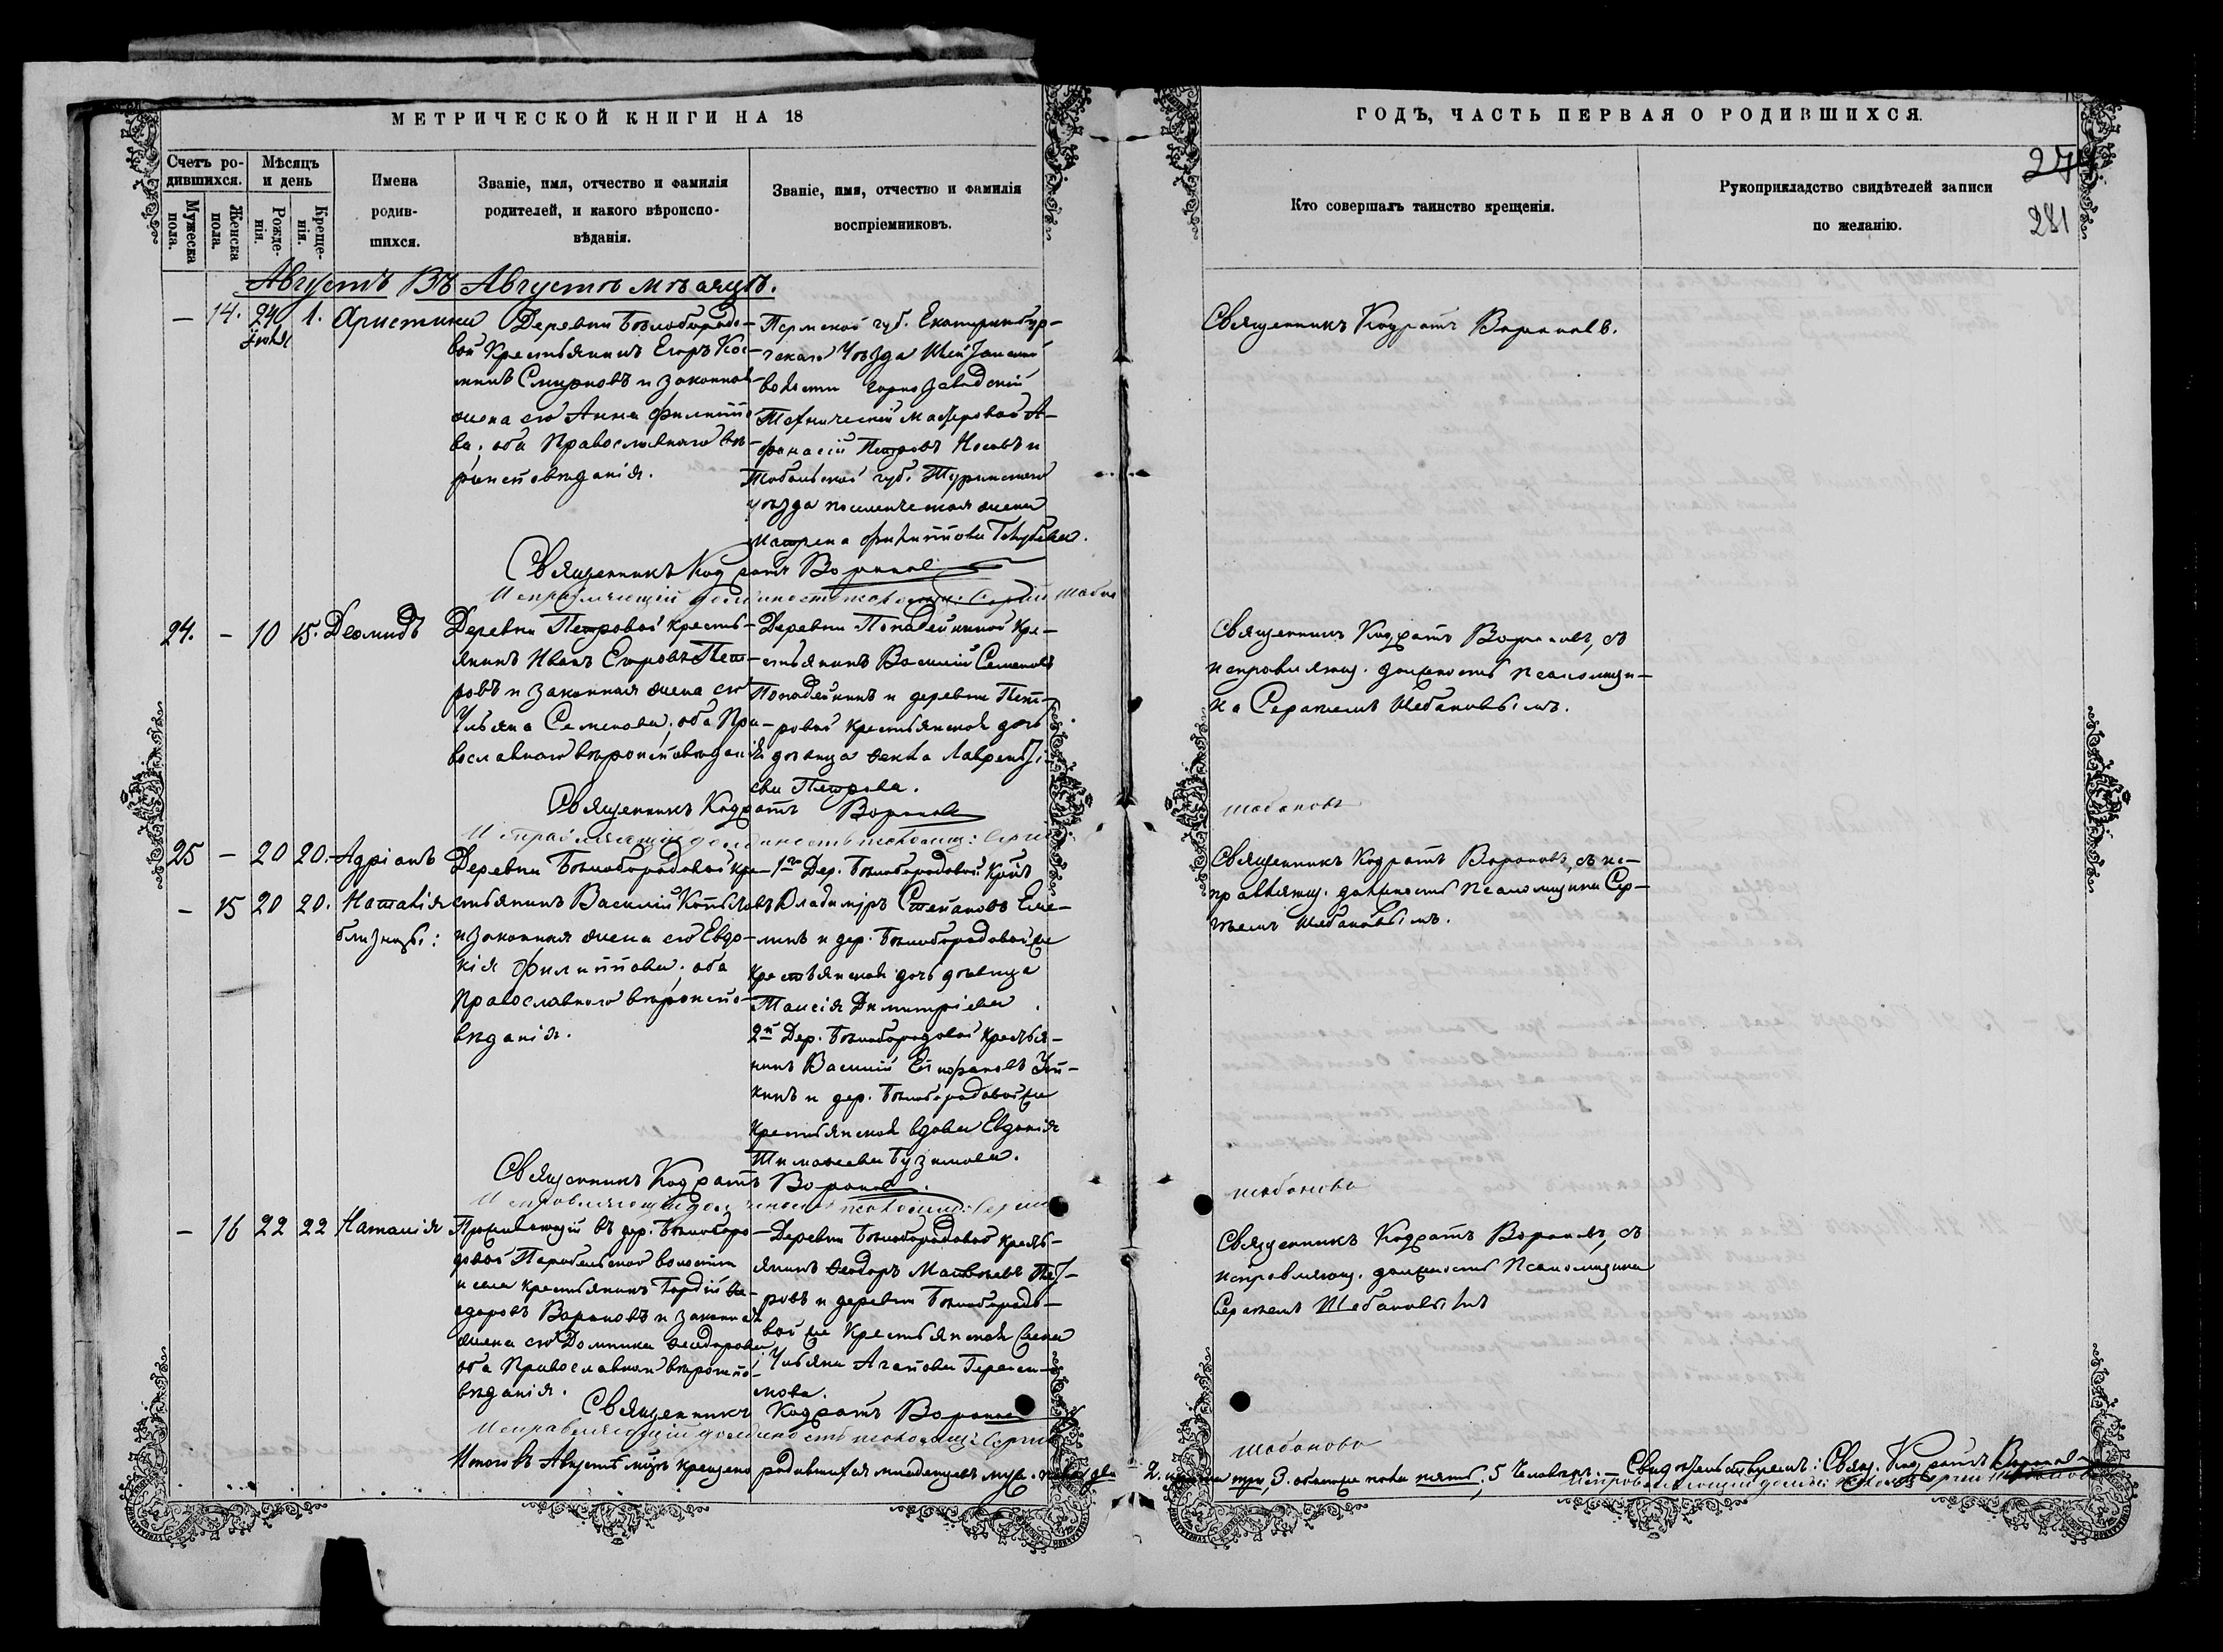 МЕТРИЧЕСКОЙ КНИГИ НА 18
ГОДЪ, ЧАСТЬ ПЕРВАЯ О РОДИВШИХСЯ.
274
281
Счетъ ро-
дившихся.
Мужеска пола.
Женска пола.
Мѣсяцъ и день
Рожде-
нія.
Креще-
нія.
Имена
родив-
шихся.
Званіе, имя, отчество и фамилія
родителей, и какого вѣроиспо-
вѣданія.
Званіе, имя, отчество и фамилія
воспріемниковъ.
Кто совершалъ таинство крещенія.
Рукоприкладство свидѣтелей записи
по желанію.
Августъ Въ Августѣ мѣсяцѣ.
— 14. 24 Іюля 1. Христина
Деревни Бѣлобородо-
вой Крестьянинъ Егоръ
Смирновъ и законная
жена его Анна Филиппо
ва; оба Православнаго вѣ-
роисповѣданія.
Пермской губ. Екатеринбур-
гскаго Уѣзда
волости Горнозаводскій
Техническій мастеровой А-
фанасій Петровъ Носовъ и
Тобольской губ. Туринскаго
уѣзда жена
Матрена Филиппова
Священникъ Кодратъ Вороновъ.
Священникъ Кодратъ Вороновъ
Исправляющій должность псаломщ: Сергій Шабан
24. — 10 15. Деомидъ
Деревни Петровой кресть-
янинъ Иванъ Егоровъ Пет-
ровъ и законная жена его
Ульяна Семенова; оба Пра-
вославнаго вѣроисповѣданія
Деревни Попадейкиной Кре-
стьянинъ Василій Семеновъ
Попадейкинъ и деревни Пет-
ровой крестьянская дочь
дѣвица Ѳекла Лаврентьі-
ева Петрова.
Священникъ Кодратъ Вороновъ, съ
исправляющ. должность Псаломщи-
ка Сергѣемъ Шебановымъ.
Священникъ Кодратъ Вороновъ
Исправляющій должность псаломщ: Сергій
Шабановъ
25 — 20 20. Адріанъ
— 15 20 20. Наталія
близнцы:
Деревни Бѣлобородовой Кре-
стьянинъ Василій Копыловъ
и законная жена его Евдо-
кія Филиппова; оба
Православнаго вѣроиспо-
вѣданія.
1го Дер. Бѣлобородовой Кр-нъ
Владиміръ Степановъ Еме-
линъ и дер. Бѣлобородовой же
Крестьянская дочь дѣвица
Таисія Димитріева
2й Дер. Бѣлобородовой Крестья-
нинъ Василій
и дер. Бѣлобородовой же
Крестьянская вдова Евдокія
Тимоѳеева Бузимова.
Священникъ Кодратъ Вороновъ, съ ис-
правляющ. должность Псаломщика Сер-
гѣемъ Шебановымъ.
Священникъ Кодратъ Вороновъ.
Исправляющій должность псаломщ: Сергій
Шабановъ
— 16 22 22 Наталія
Проживающій въ дер. Бѣлоборо-
довой волости
и села крестьянинъ Гордій Ѳе-
одоровъ Вороновъ и законная
жена его Домника Ѳеодорова;
оба Православнаго вѣроиспо-
вѣданія.
Деревни Бѣлобородовой кресть-
янинъ Ѳеодоръ Матвѣевъ Пет-
ровъ и деревни Бѣлобородо-
вой же Крестьянская жена
Ульяна Агапова Гераси-
мова.
Священникъ Кодратъ Вороновъ, съ
исправляющ. должность Псаломщика
Сергѣемъ Шебановымъ
Священникъ Кодратъ Вороновъ
Исправляющій должность псаломщ: Сергій
Шабановъ
Итого въ Августѣ мцѣ крещено родившихся младенцевъ муж. пола два 2. женска три, 3. обоего пола пять, 5 человѣкъ. — Свидѣтельствуемъ: Свящ. Кодратъ Вороновъ
Исправляющій должн: псаломщ Сергій Шабановъ